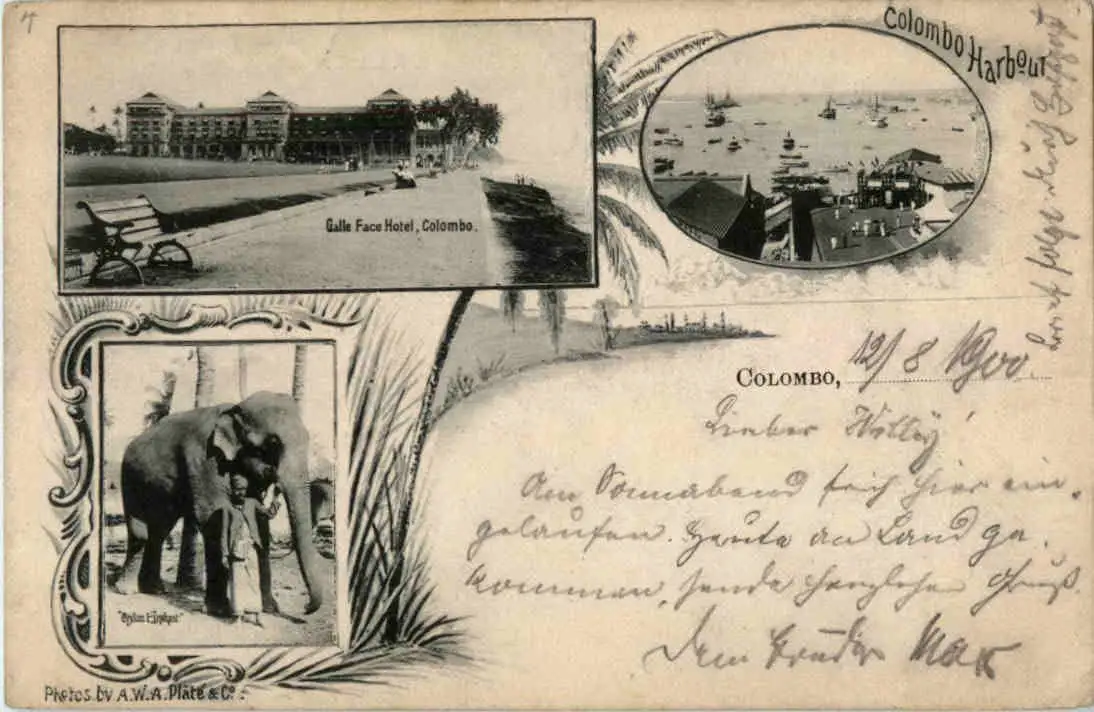 Galle Face Hotel, Colombo.
Colombo Harbour
Ceylon Elephant
Photos by A.W.A. Plâté & Co.
COLOMBO, 12/8 1900.
Lieber Willy!
Am Sonnabend früh hier ein-
gelaufen. Heute an Land ge-
kommen, sende herzlichen Gruß.
Dein Bruder Max
Brief folgt